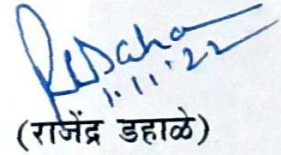 1.11.22
(राजेंद्र डहाळे)